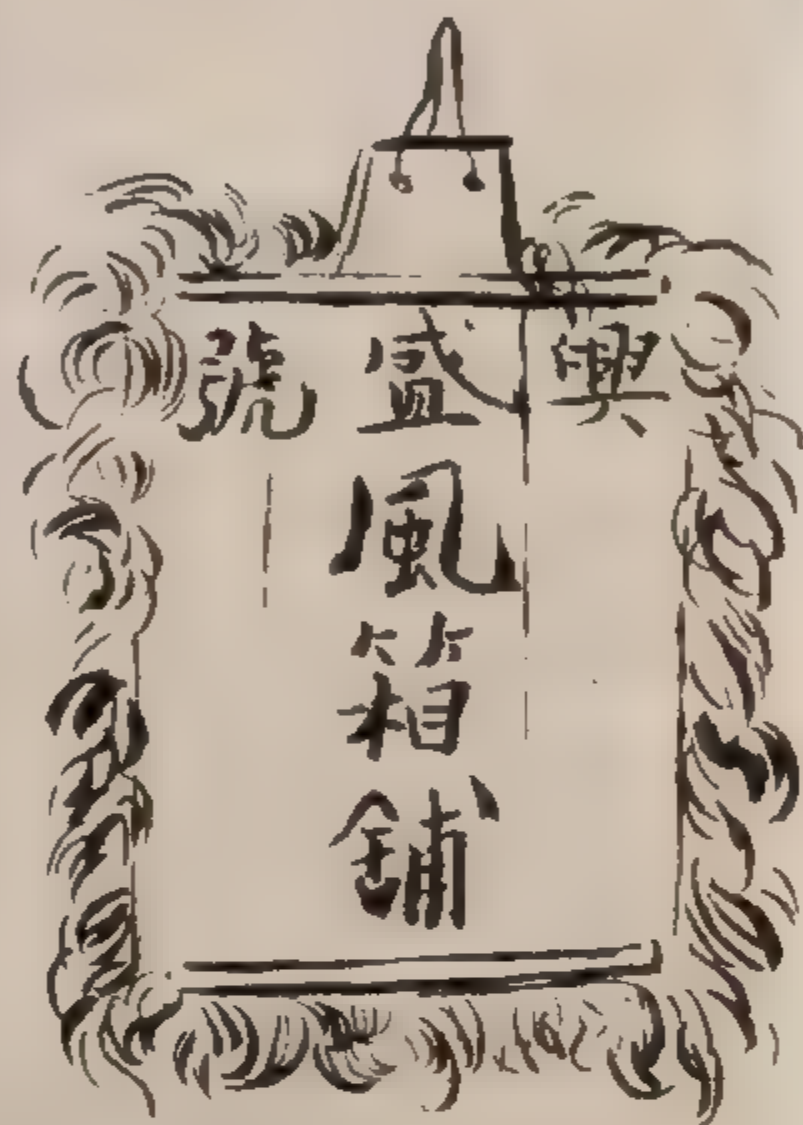 興盛號
風箱舖